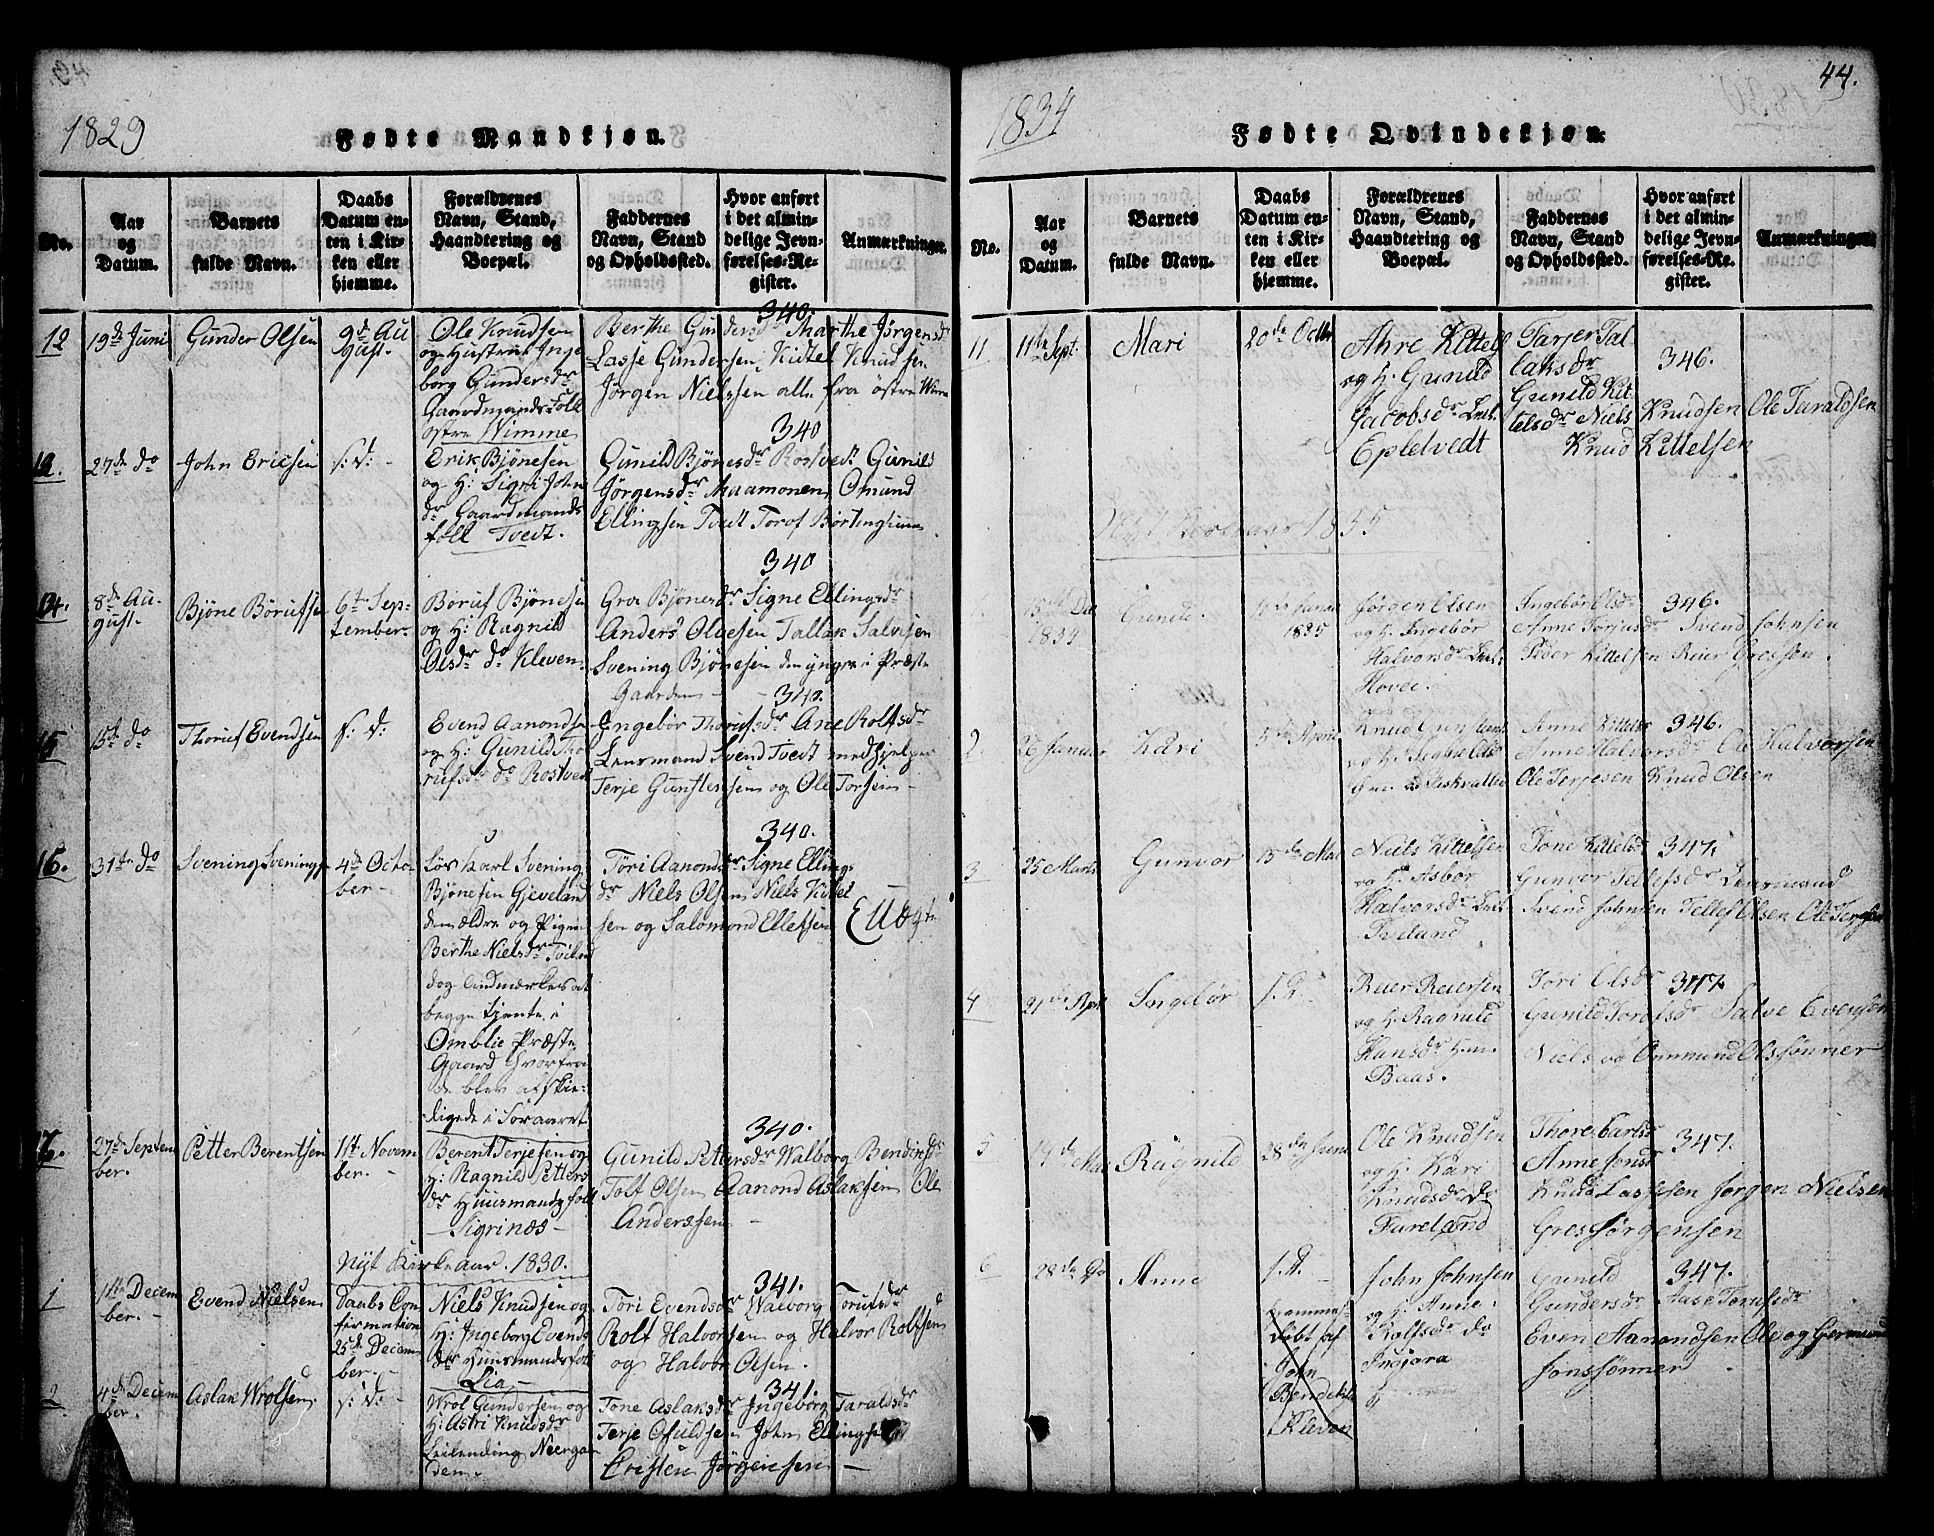 1829
Fødte Mandkjøn.
No.
Aar
og
Datum.
Barnets
fulde Navn.
Daabs
Datum en-
ten i Kir-
ken eller
hjemme.
Forældrenes
Navn, Stand,
Haandtering og
Boepæl.
Faddernes
Navn, Stand
og Opholdssted.
Hvor anført
i det almin-
delige Jevn-
førelses-Re-
gister.
Anmærkninger.
12
19de Juni
Gunder Olsen
9de Au
gust.
Ole Knudsen
og Hustrue Inge
borg Gundersdr
Gaardmands Folk
østre Wimme
340.
Berthe Gundersdr Marthe Jørgensdr
Lasse Gundersen, Kittel Knudsen
Jørgen Nielssen alle fra østre Wime
27de do
John Ericsen
s: D: -
Erik Bjønesen
og H: Signi John
dr Gaardmands
folk Tvedt.
340
Gunild Bjønesdr Rostvedt Gunild
Jørgensdr Maamonen, Omund
Ellingsen Tvedt Torof
14.
8de Au-
gust.
Bjøne Børufsen
6te Sep-
tember-
Boruf Bjønesen
og H: Ragnild
Olsdr do Kleven.
340
Groe Bjønesdr Signe Ellingsdr
Anders Olvesen Tallak Salvesen
Svening Bjønesen den yngre i Præste
Gaarden -
15
15de do
Thoruf Evendsen
s: D:
Evend Aanondsen
og H: Gunild Tho
rufsdr do Rostvedt
340.
Ingebor Thorufsdr Ane Rolfsdr
Lensmand Svend Tvedt medhjelper
Terje Gunstensen og Ole Torsen -
16.
31te do
Svening Svenings
4de Octo-
ber -
Løs Karl Svening
Bjønesen Gjeveland
den ældre og Pigen
Berthe Nielsdr
dog andmærkes at
begge tjente i
Omblie Præste
Gaard hvorfra
de blev afskie-
digede i Foraaret
340.
Tori Aanondsdr Signe Ellings
dr Niels Olsen Niels Kittel
sen og Salomond Ellefsen
Euægte
17.
27de Septem
ber.
Petter Berentsen
11te Novem
ber. -
Berent Terjesen og
H: Ragnild Petters
dr Huusmands folk
Sigrinæs -
340.
Gunild Pettersdr Walborg Bendixsdr
Tolf Olsen Aanond Aslaksen Ole
Anderssen -
Nyt Kirke aar. 1830.
1
1ste Decem
ber. -
Evend Nielsen
Daabs Con
firmation
25de Decem
ber. -
Niels Knudsen og
H: Ingeborg Evends
dr Huusmandsfolk
Lia -
341.
Tori Evendsdr Walborg Torufsdr
Rolf Halvorsen og Halvor Rolfsen
og Halvor Olsen.
2
4de Decem
ber.
Aslak Wrolsen.
s: D: -
Wrol Gundersen og
H: Astri Knudsdr
Leilending Neergar
den.
341.
Tone Aslaksdr Ingeborg Taraldsdr
Terje Osuldsen John Ellingsen
Cristen Jørgensen -
44.
1834
Fødte Qvindekjøn.
No.
Aar
og
Datum.
Barnets
fulde Navn.
Daabs
Datum en-
ten i Kir-
ken eller
hjemme.
Forældrenes
Navn, Stand,
Haandtering og
Boepæl.
Faddernes
Navn, Stand
og Opholdssted.
Hvor anført
i det almin-
delige Jevn-
førelses-Re-
gister.
Anmærkninger.
11
11te Sept.
Mari
20de Octbr
Ahre Kittels
og H. Gunild
Jacobsdr
Epletvedt
Tarjer Tal
laksdr
Gunild Kit
telsdr Niels Knudsen Ole Taraldsen
Knud Kittelsen
346.
Nyt Kirkeaar 1835
15de Dec
1834
Gunild
Januar
1835
Jørgen Olsen
og H. Ingebør
Halvorsdr
Hovee.
Ingebør Olsdr
346.
Anne Torjusdr Svend Johnsen
Peder Kittelsen Reier Gresen.
2
26 Januar
Kari
Knud
346.
Anne Kittelsdr
Anne Halvorsdr Ole Halvorsen
Ole Terjesen Knud Olsen
3
25 Marts
Gunvor
15de Mai
Niels Kittelsen
og H. Asbor
Halvorsdr
Tveland
Tone Kittelsdr
347.
Gunvor Tellefsdr Lensmand
Svend Johnsen Tellef Olsen Ole Terjesen
4
21de April
Ingebør
s. D.
Reier Reiersen
og H. Ragnild
Hansdr
Baas.
Tori Olsdr
347
Gunild Torolsdr Salve Evensen
Niels og Ommund Olssønner
5
14de Mai
Ragnild
28de Juni
Ole Knudsen
og H. Kari
Knudsdr do
Fureland
347.
Anne Jonsdr
Knud Lassesen Jørgen Nielsen
Gres Jørgensen
6
28de Do
Anne
s. D. -
hjemme
døbt af
John
Bendeks
Kleven
John Johnsen
og H. Anne
Rolfsdr do
Ingjara
Gunild
347.
Gundersdr Aase Torufsdr
Even Aanondsen Ole og Germund
Jonssønner -